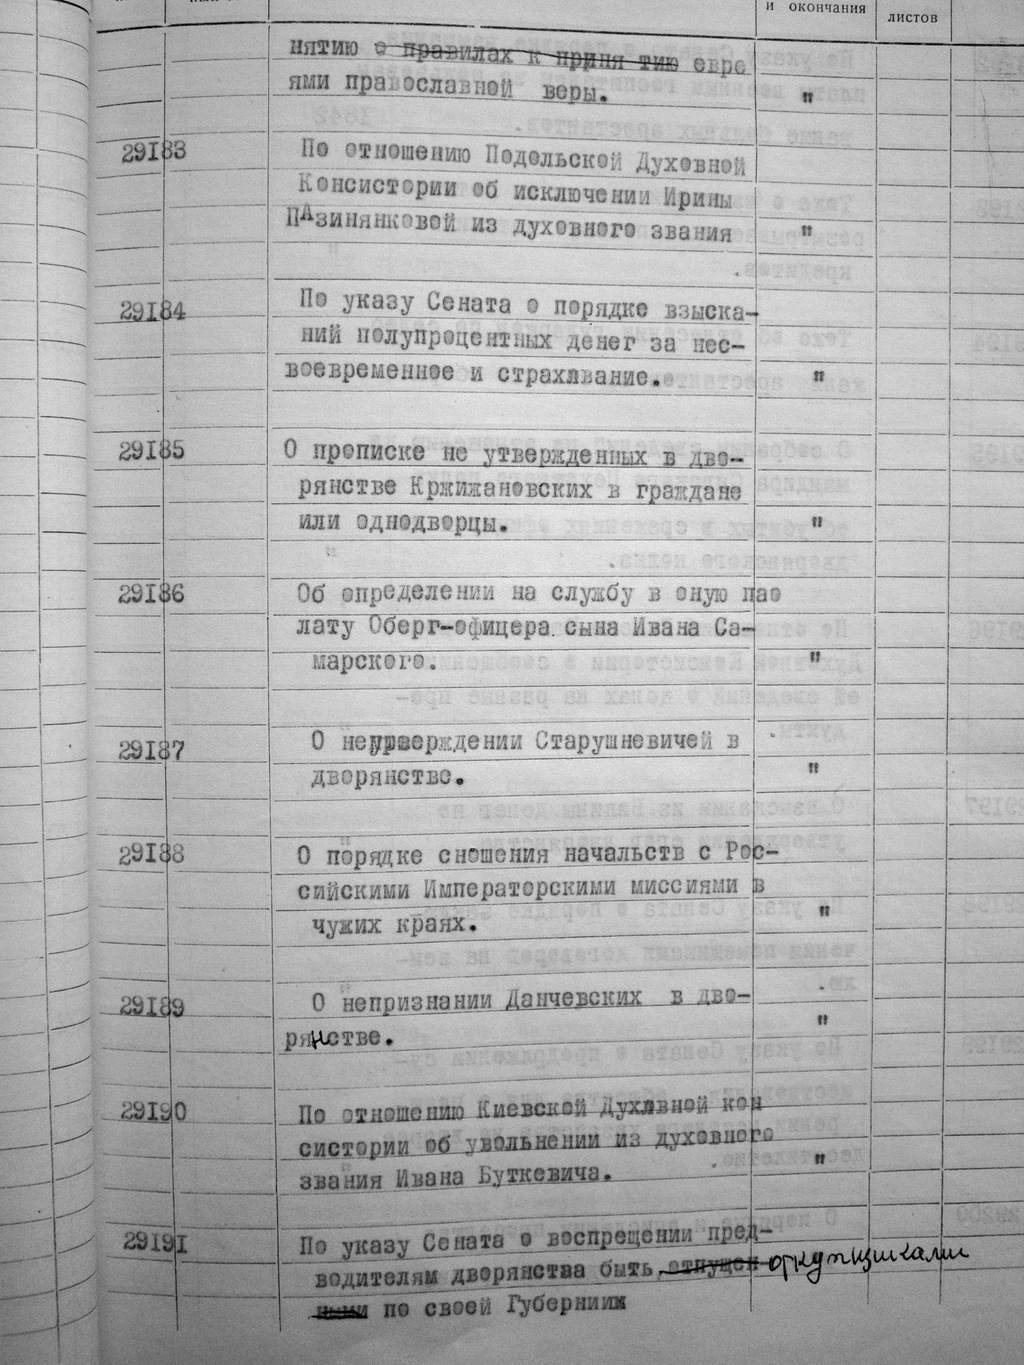 и окончания
листов
нятию о правилах к приня тию евре
ями православной веры. "
29183 По отношению Подольской Духовной
Консистории об исключении Ирины
ПАзинянковой из духовного звания "
29184 По указу Сената о порядке взыска-
ний полупроцентных денег за нес-
воевременное и страхавание. "
29185 О прописке не утвержденных в дво-
рянстве Кржижановских в граждане
или однодворцы. "
29186 Об определении на службу в оную пао
лату Оберг-офицера сына Ивана Са-
марского. "
29187 О неутверждении Старушневичей в
дворянстве. "
29188 О порядке сношения начальств с Рос-
сийскими Императорскими миссиями в
чужих краях. "
29189 О непризнании Данчевских в дво-
рянстве. "
29190 По отношению Киевской Духавной кон
систории об увольнении из духовного
звания Ивана Буткевича. "
29191 По указу Сената о воспрещении пред-
водителям дворянства быть отпущен откупщиками
ными по своей Губернии